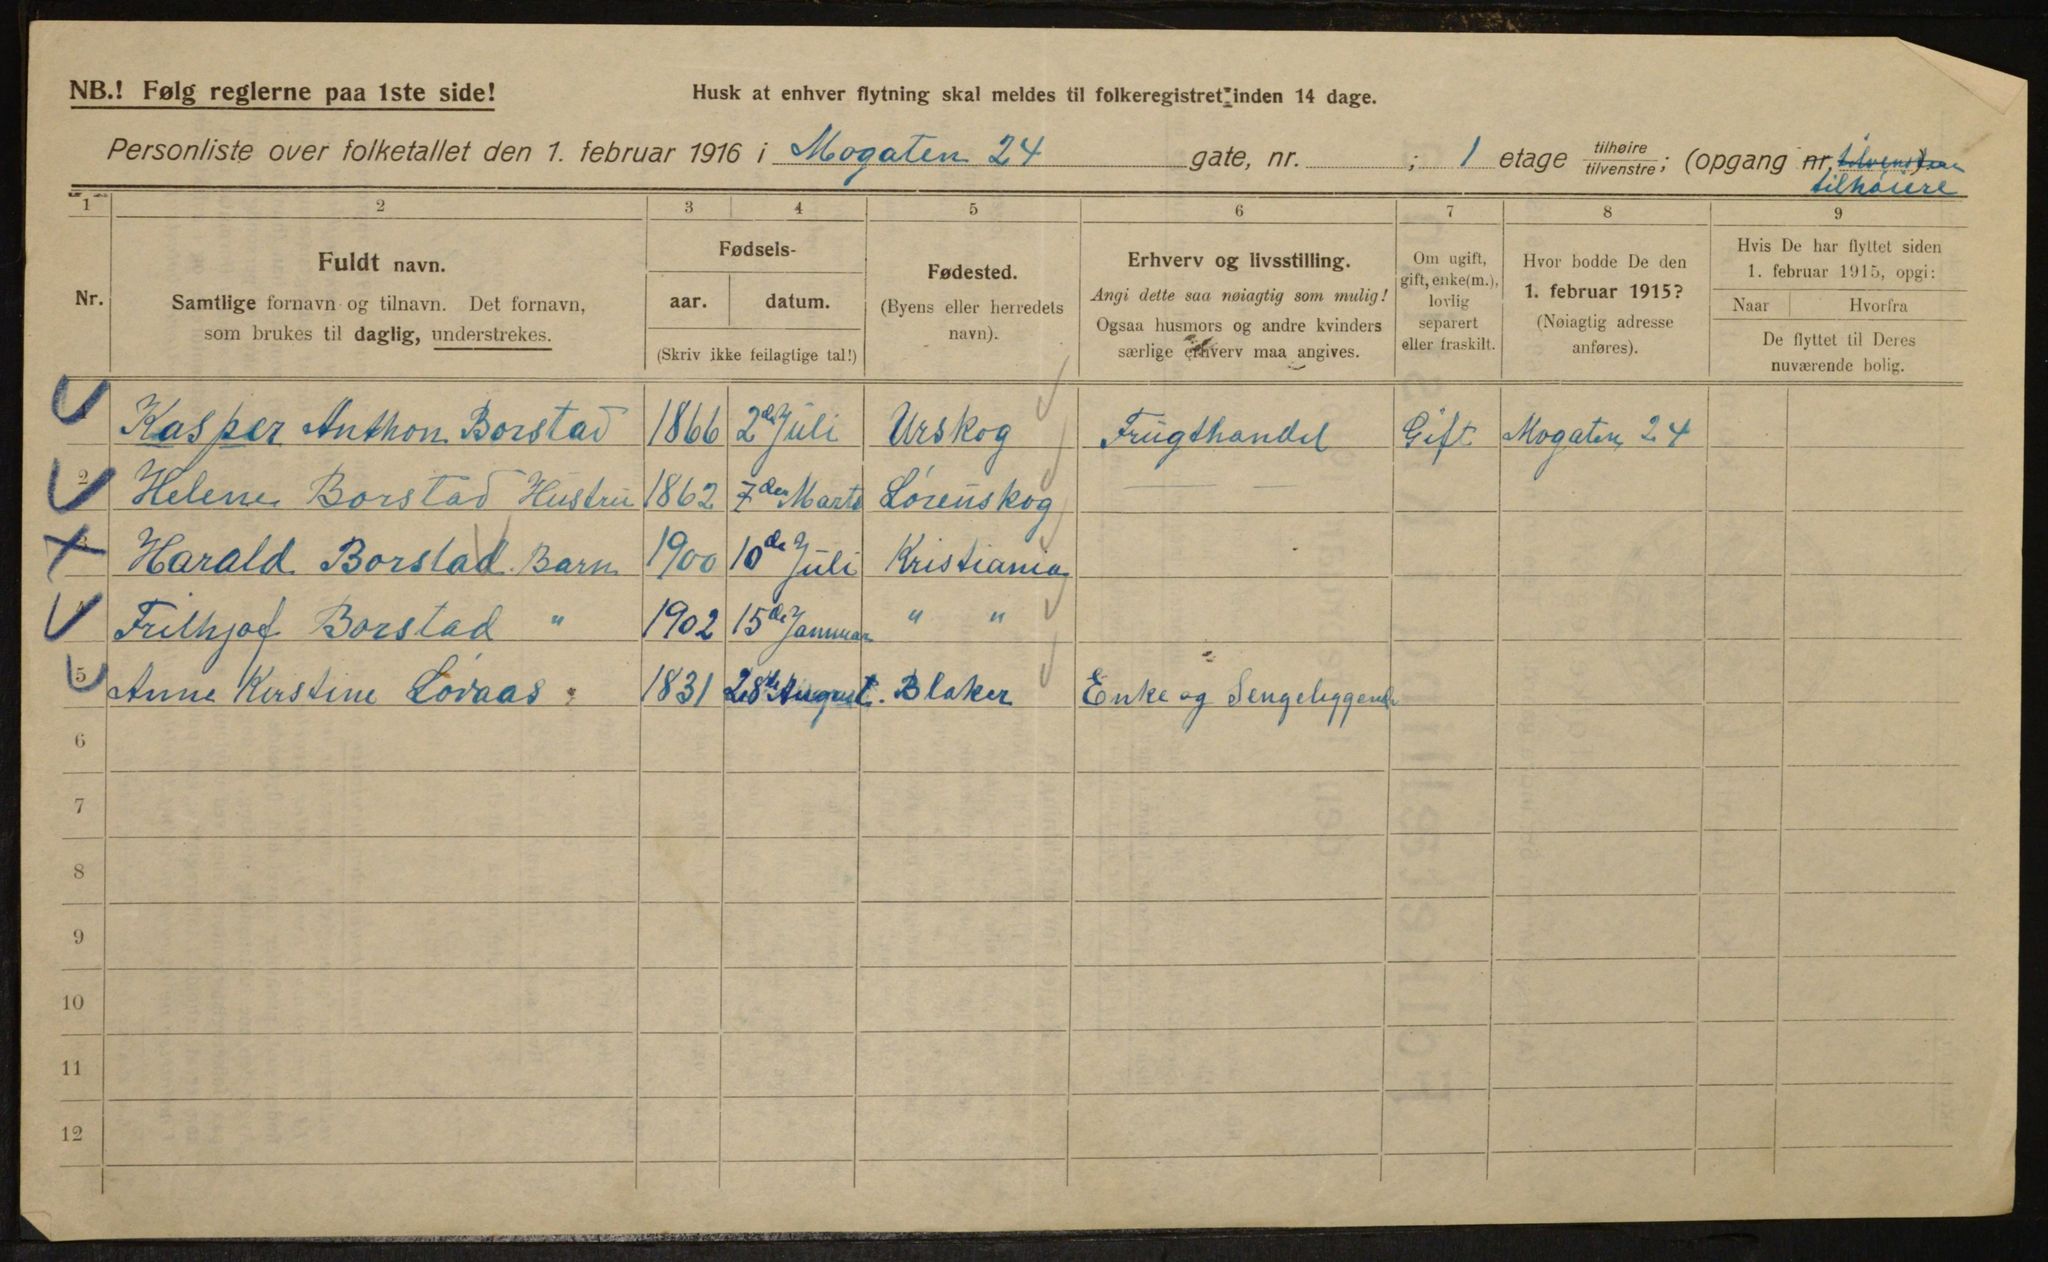 NB.! Følg reglerne paa 1ste side!
Husk at enhver flytning skal meldes til folkeregistret inden 14 dage.
Personliste over folketallet den 1. februar 1916 i Mogaten 24 gate, nr. ; 1 etage tilhøire/tilvenstre; (opgang nr. tilvenstre)
tilhøiere
1 2 3 4 5 6 7 8 9
Nr.
Fuldt navn.
Samtlige fornavn og tilnavn. Det fornavn,
som brukes til daglig, understrekes.
Fødsels-
aar. datum.
(Skriv ikke feilagtige tal!)
Fødested.
(Byens eller herredets
navn).
Erhverv og livsstilling.
Angi dette saa nøiagtig som mulig!
Ogsaa husmors og andre kvinders
særlige erhverv maa angives.
Om ugift,
gift, enke(m.),
lovlig
separert
eller fraskilt.
Hvor bodde De den
1. februar 1915?
(Nøiagtig adresse
anføres).
Hvis De har flyttet siden
1. februar 1915, opgi:
Naar Hvorfra
De flyttet til Deres
nuværende bolig.
Kasper Anthon Borstad 1866 2de Juli Urskog Frugthandel Gift Mogaten 24
2 Helene Borstad Hustru 1862 7de Marts Lørenskog — —
3 Harald Borstad Barn 1900 10de Juli Kristiania
Frithjof Borstad " 1902 15de Januar " "
5 Anne Kirstine Løvaas 1831 28de August. Blaker Enke og Sengeliggende
6
7
8
9
10
11
12